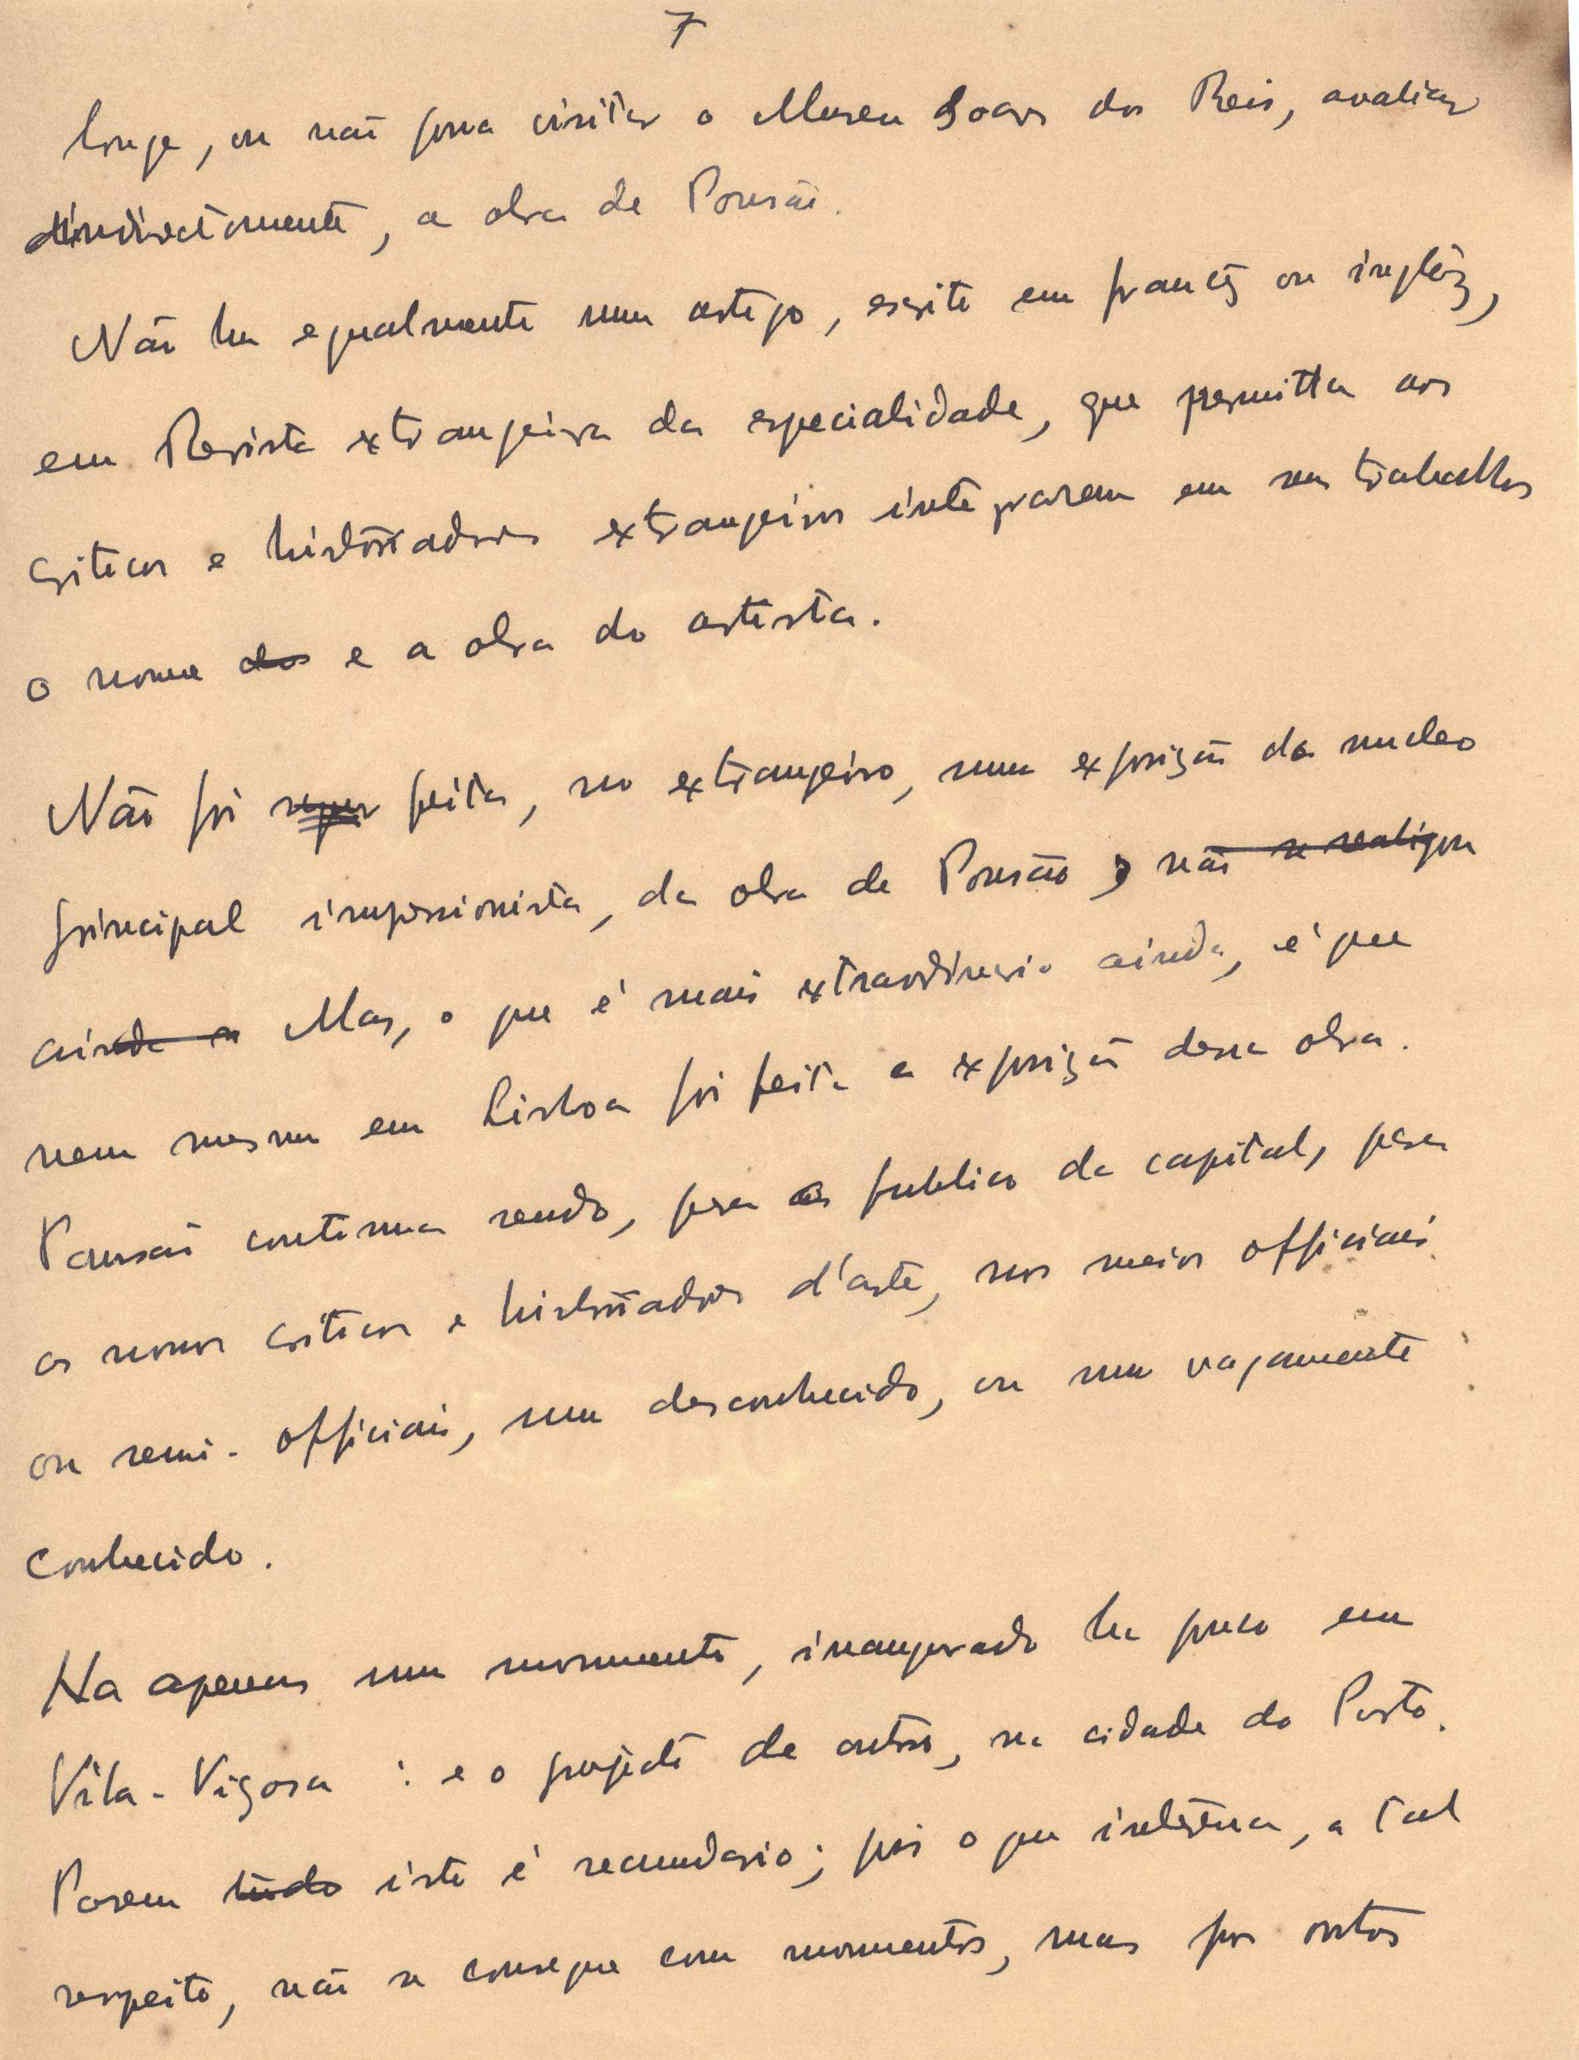 7
longe, ou não possa visitar o Museu Soares dos Reis, avaliar
indirectamente, a obra de Pousão.
Não ha egualmente um artigo, escrito em francêz ou inglêz,
em Revista extrangeira da especialidade, que permitta aos
criticos e historiadores extrangeiros integrarem em seus trabalhos
o nome dos e a obra do artista.
Não foi feita, no extrangeiro, uma exposição do nucleo
principal impressionista, da obra de Pousão, não se realizou
ainda a Mas, o que é mais extraordinario ainda, é que
nem mesmo em Lisboa foi feita a exposição dessa obra.
Pousão continua sendo, para o publico da capital, para
os nossos criticos e historiadores d'arte, nos meios officiais
ou semi-officiais, um desconhecido, ou um vagamente
conhecido.
Ha apenas um monumento, inaugurado ha pouco em
Vila-Viçosa: e o projecto de outro, na cidade do Porto.
Porem tudo isto é secundario; pois o que interessa, a tal
respeito, não se consegue com monumentos, mas por outros